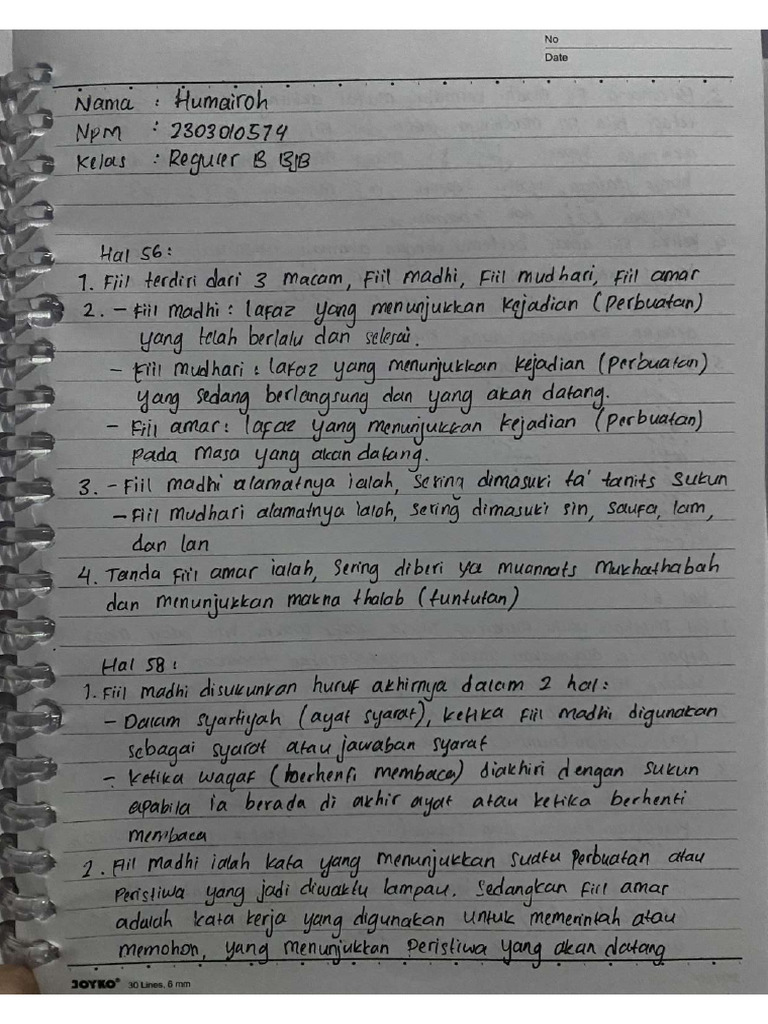 No
Date
Nama : Humairoh
Npm : 2303010574
Kelas : Reguler B BJB
Hal 56 :
1. Fiil terdiri dari 3 macam, Fiil madhi, Fiil mudhari, Fiil amar
2. - Fiil madhi : lafaz yang menunjukkan kejadian (perbuatan)
yang telah berlalu dan selesai.
- Fiil mudhari : lafaz yang menunjukkan kejadian (perbuatan)
yang sedang berlangsung dan yang akan datang.
- Fiil amar : lafaz yang menunjukkan kejadian (perbuatan)
pada masa yang akan datang.
3. - Fiil madhi alamatnya ialah, sering dimasuki ta' tanits sukun
- Fiil mudhari alamatnya ialah, sering dimasuki sin, saufa, lam,
dan lan
4. Tanda Fi'il amar ialah, sering diberi ya muannats mukhathabah
dan menunjukkan makna thalab (tuntutan)
Hal 58 :
1. Fiil madhi disukunkan huruf akhirnya dalam 2 hal :
- Dalam syartiyah (ayat syarat), ketika Fiil madhi digunakan
sebagai syarat atau jawaban syarat
- ketika waqaf (berhenti membaca) diakhiri dengan sukun
apabila ia berada di akhir ayat atau ketika berhenti
membaca
2. Fiil madhi ialah kata yang menunjukkan suatu perbuatan atau
peristiwa yang jadi diwaktu lampau. Sedangkan fiil amar
adalah kata kerja yang digunakan untuk memerintah atau
memohon, yang menunjukkan peristiwa yang akan datang
JOYKO® 30 Lines, 6 mm